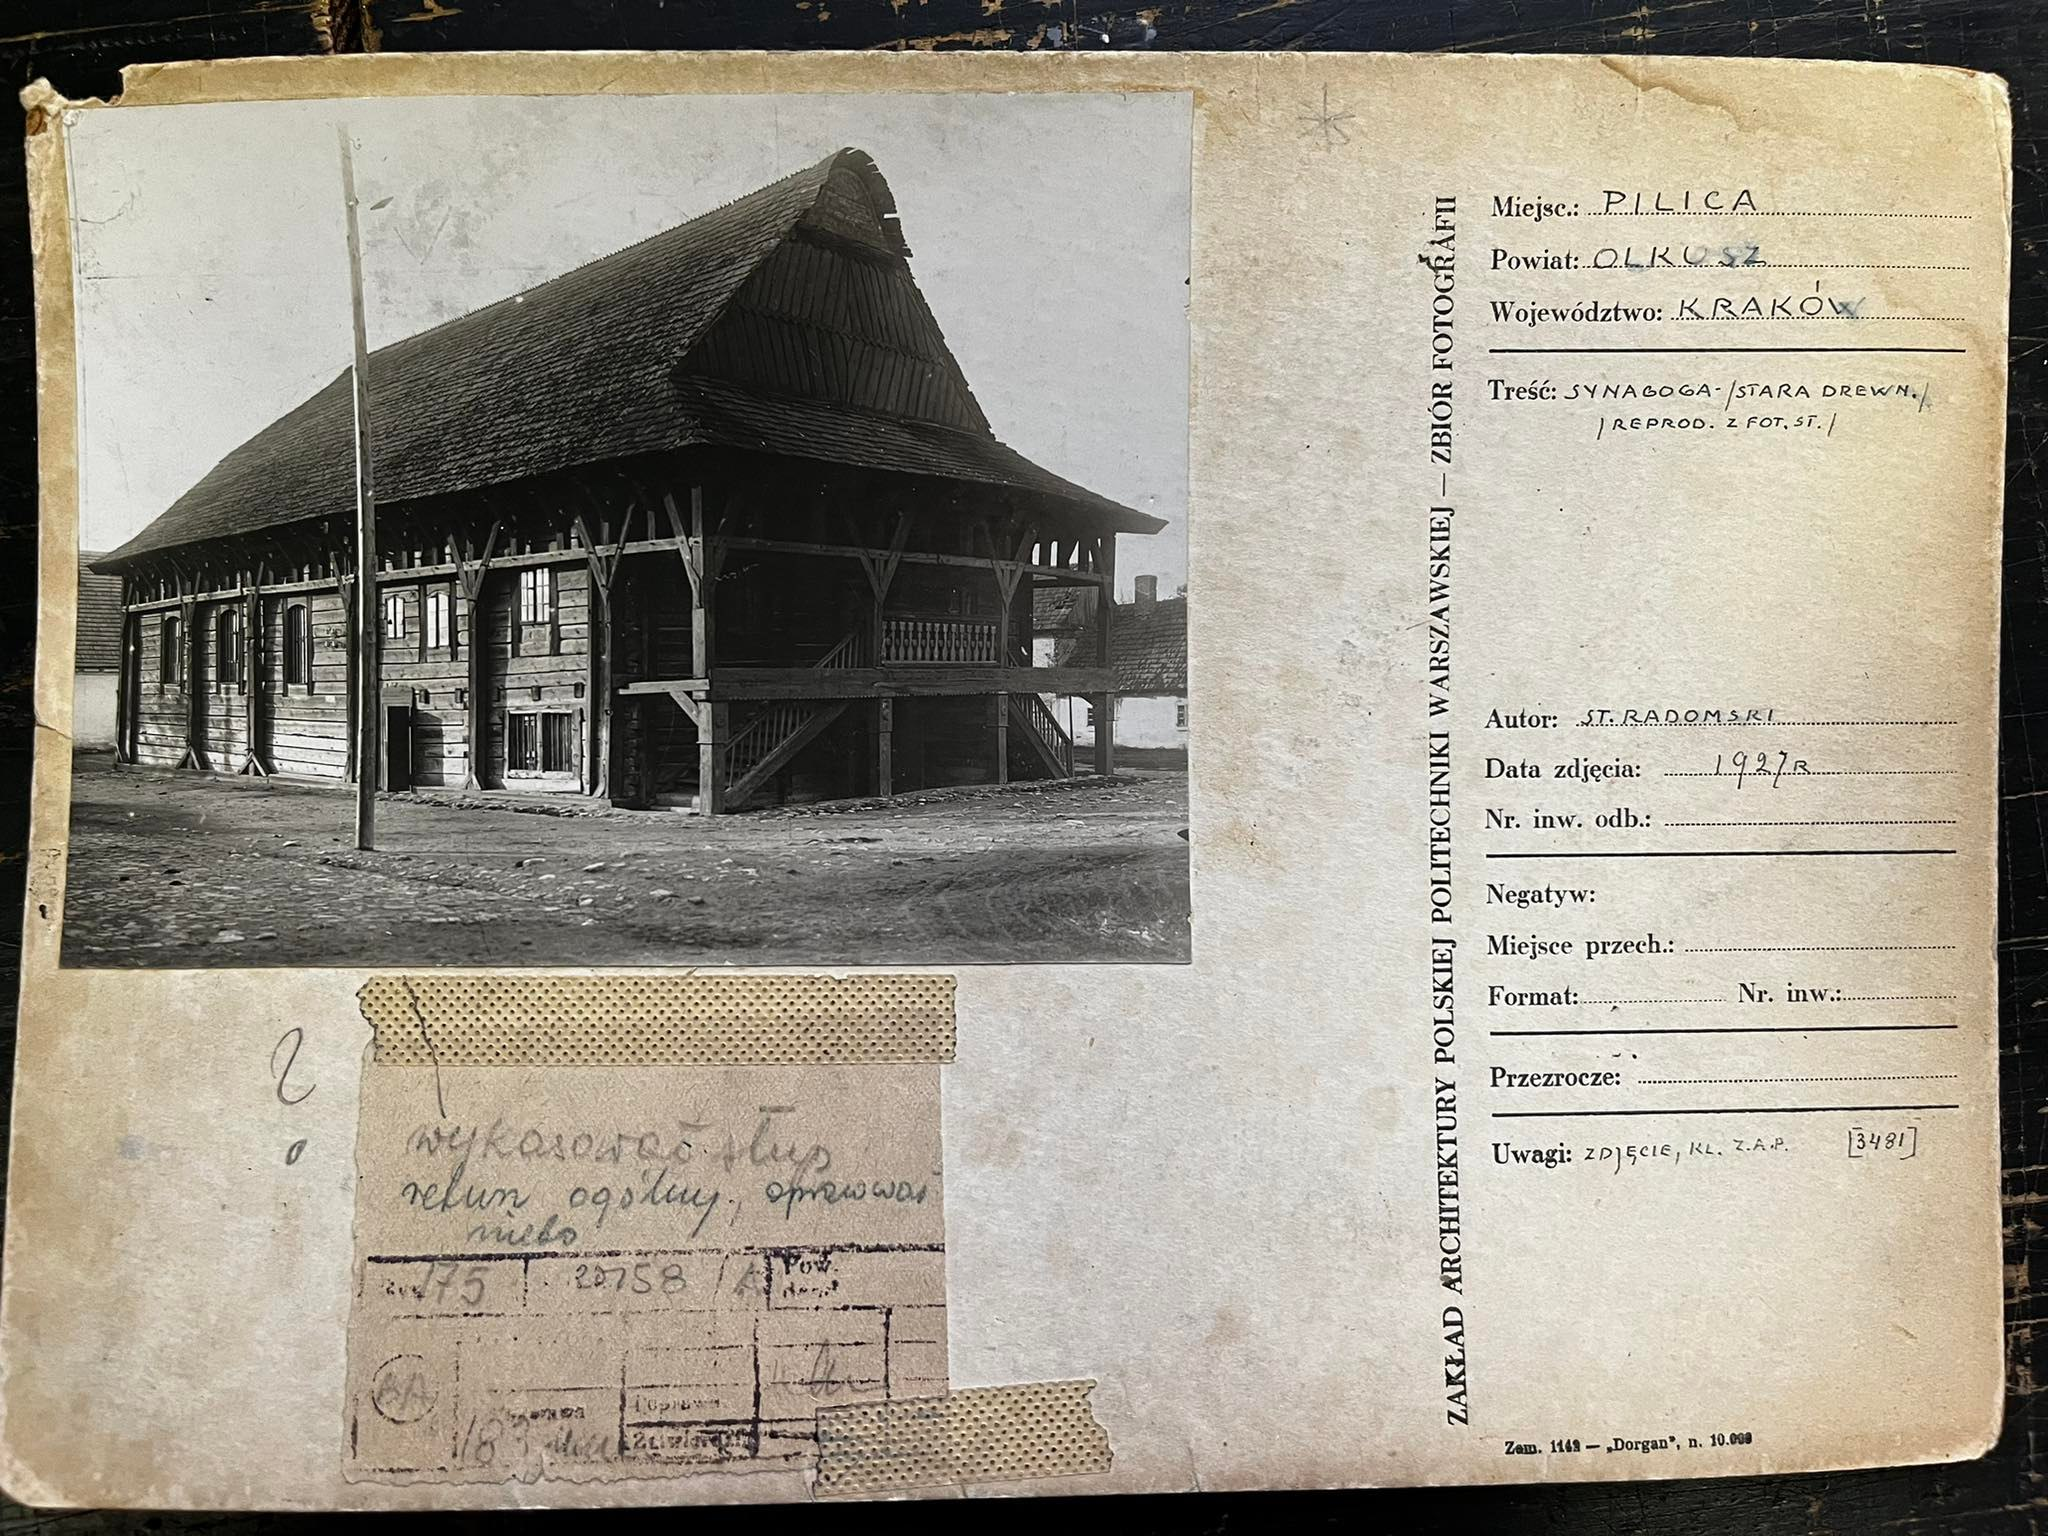 ZAKŁAD ARCHITEKTURY POLSKIEJ POLITECHNIKI WARSZAWSKIEJ — ZBIÓR FOTOGRAFII
Miejsc.: PILICA
Powiat: OLKUSZ
Województwo: KRAKÓW
Treść: SYNAGOGA - /STARA DREWN./
/REPROD. Z FOT. ST./
Autor: ST. RADOMSKI
Data zdjęcia: 1927 R
Nr. inw. odb.:
Negatyw:
Miejsce przech.:
Format: Nr. inw.:
Przezrocze:
Uwagi: ZDJĘCIE, KL. Z.A.P. [3481]
Zam. 1142 — „Dorgan”, n. 10.000
?
wykasować słup
retusz ogólny, opracować
niebo
175 20158 Pow.
183